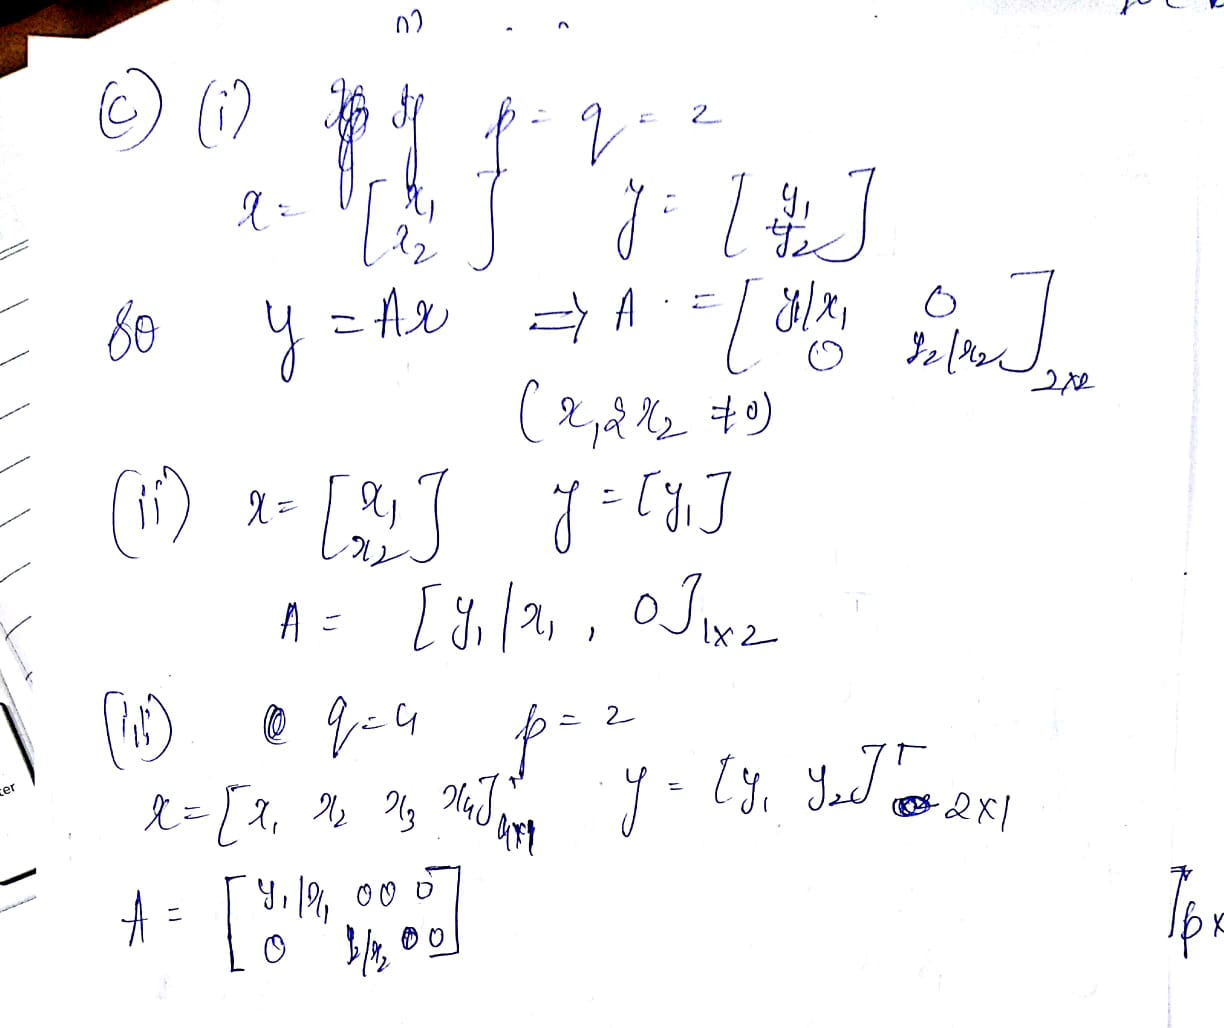 (c) (i) p = q = 2
x = [x₁ x₂] y = [y₁ y₂]
so y = Ax ⇒ A = [y₁/x₁ 0 0 y₂/x₂]₂ₓ₂
(x₁ & x₂ ≠ 0)
(ii) x = [x₁ x₂] y = [y₁]
A = [y₁/x₁ , 0]₁ₓ₂
(iii) q = 4 p = 2
x = [x₁ x₂ x₃ x₄]ᵀ₄ₓ₁ y = [y₁ y₂]ᵀ 2×1
A = [y₁/x₁ 0 0 0
0 y₂/x₂ 0 0]